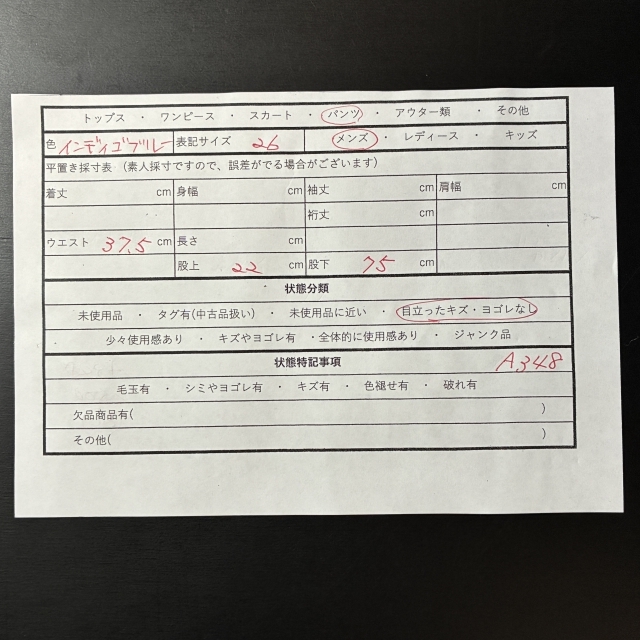 トップス ・ ワンピース ・ スカート ・ パンツ ・ アウター類 ・ その他
色 インディゴブルー 表記サイズ 26 メンズ ・ レディース ・ キッズ
平置き採寸表 (素人採寸ですので、誤差がでる場合がございます)
着丈 cm 身幅 cm 袖丈 cm 肩幅 cm
裄丈 cm
ウエスト 37.5 cm 長さ cm
股上 22 cm 股下 75 cm
状態分類
未使用品 ・ タグ有(中古品扱い) ・ 未使用に近い ・ 目立ったキズ・ヨゴレなし
少々使用感あり ・ キズやヨゴレ有 ・全体的に使用感あり ・ ジャンク品
状態特記事項 A348
毛玉有 ・ シミやヨゴレ有 ・ キズ有 ・ 色褪せ有 ・ 破れ有
欠品商品有( )
その他( )